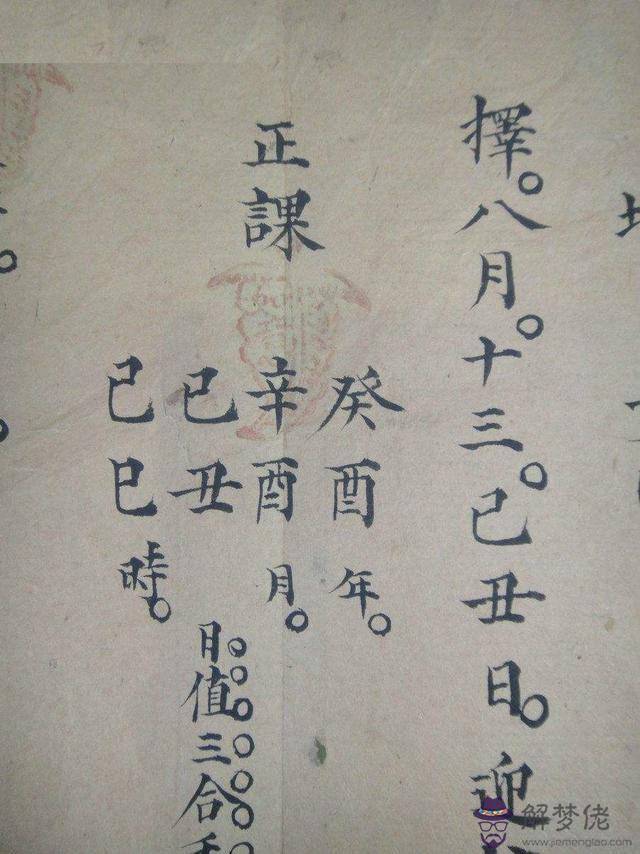 擇。八月。十三。己丑日。迎
正課
癸酉年。
辛酉月。
己丑日。值。三。合。
己巳時。
解梦佬
www.jiemenglao.com